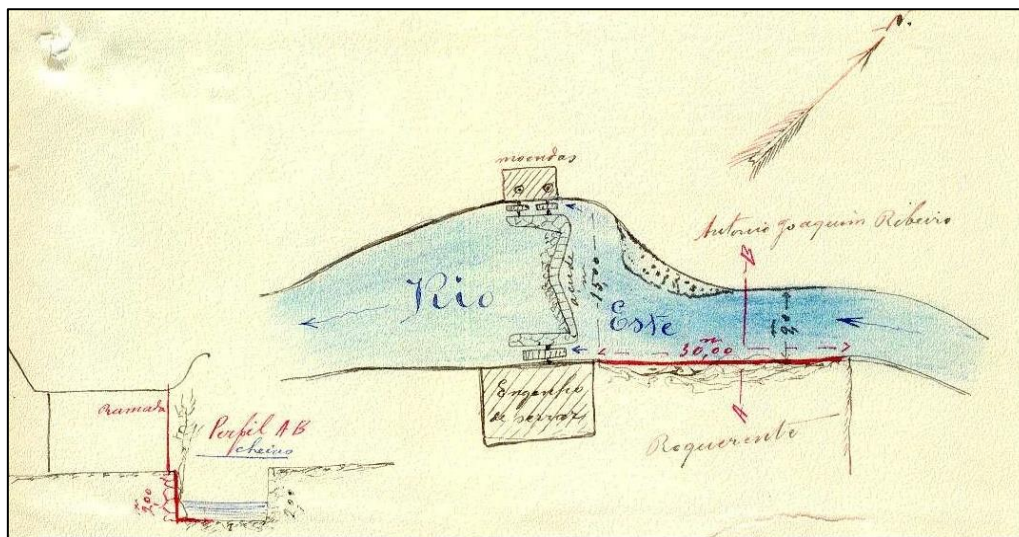 N.
moendas
Antonio Joaquim Ribeiro
B
açude
m
15,00
Rio
Este
m
9,0
m
30,00
Engenho
de serrar
A
Requerente
Ramada
Perfil AB
cheias
m
2,00
2,00